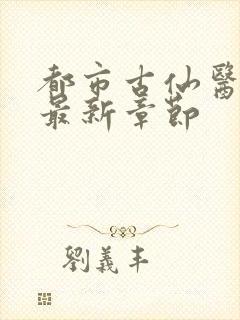 都市古仙醫
最新章節
劉義丰